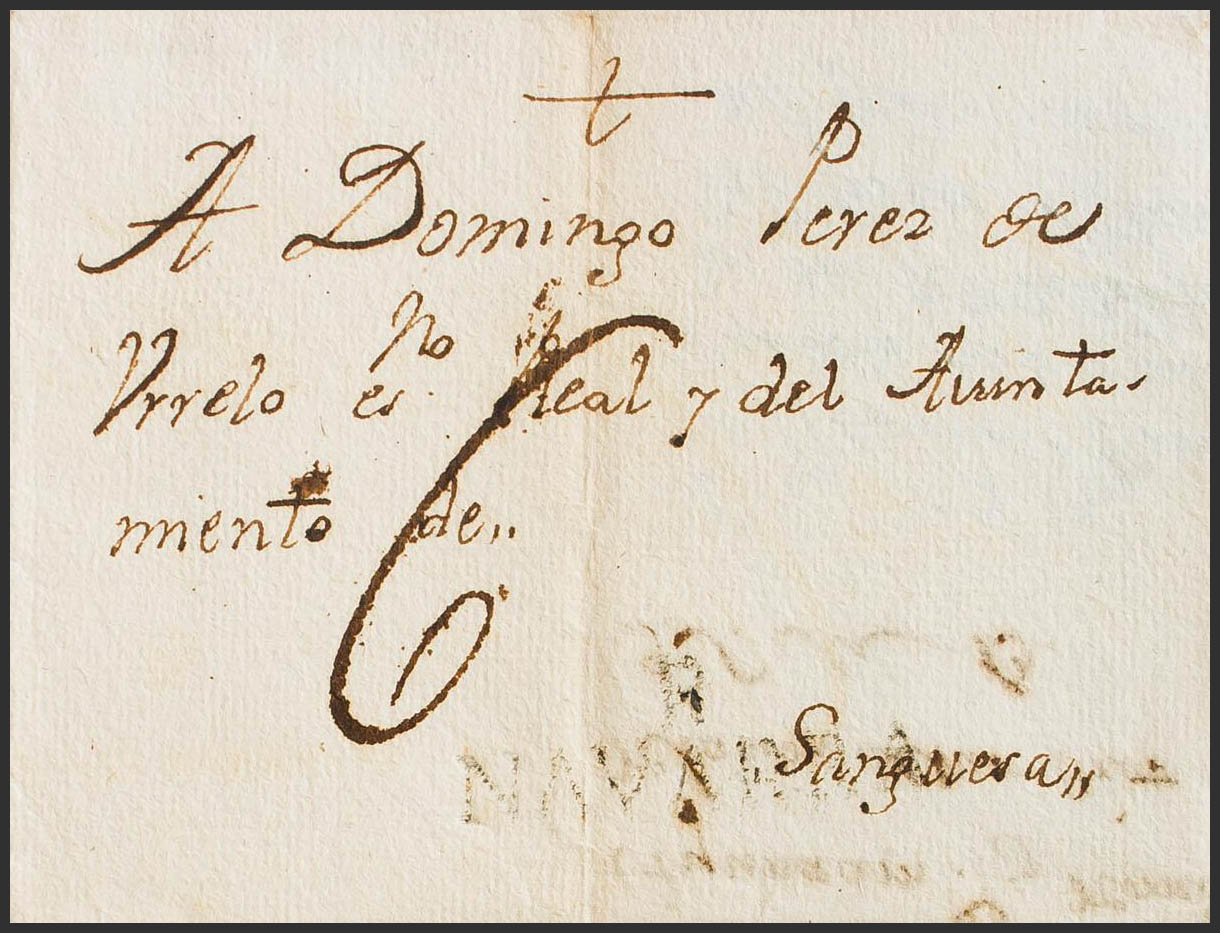 A Domingo Perez de
Vrrelo esno Real y del Aiunta
miento de
6
NAVARRA
Sanguesa